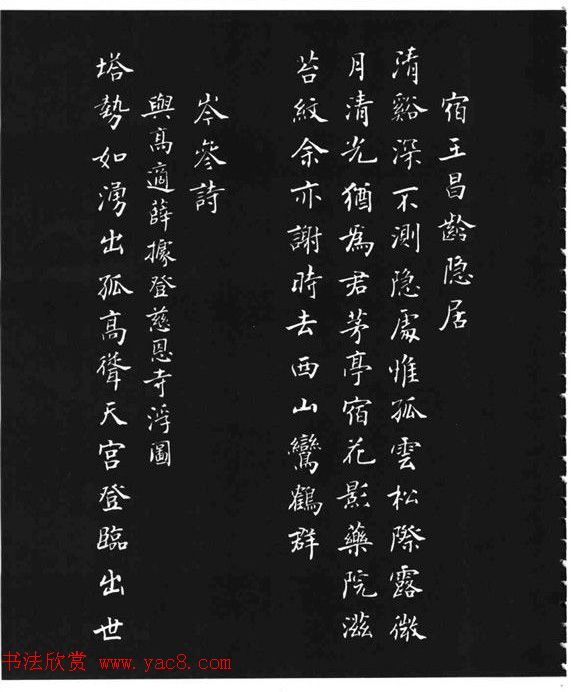 宿王昌齡隐居
清谿深不測隐處惟孤雲松際露微
月清光猶為君茅亭宿花影藥院滋
苔紋余亦謝時去西山鸞鶴群
岑參詩
與高適薛據登慈恩寺浮圖
塔勢如湧出孤高聳天宮登臨出世
书法欣赏 www.yac8.com